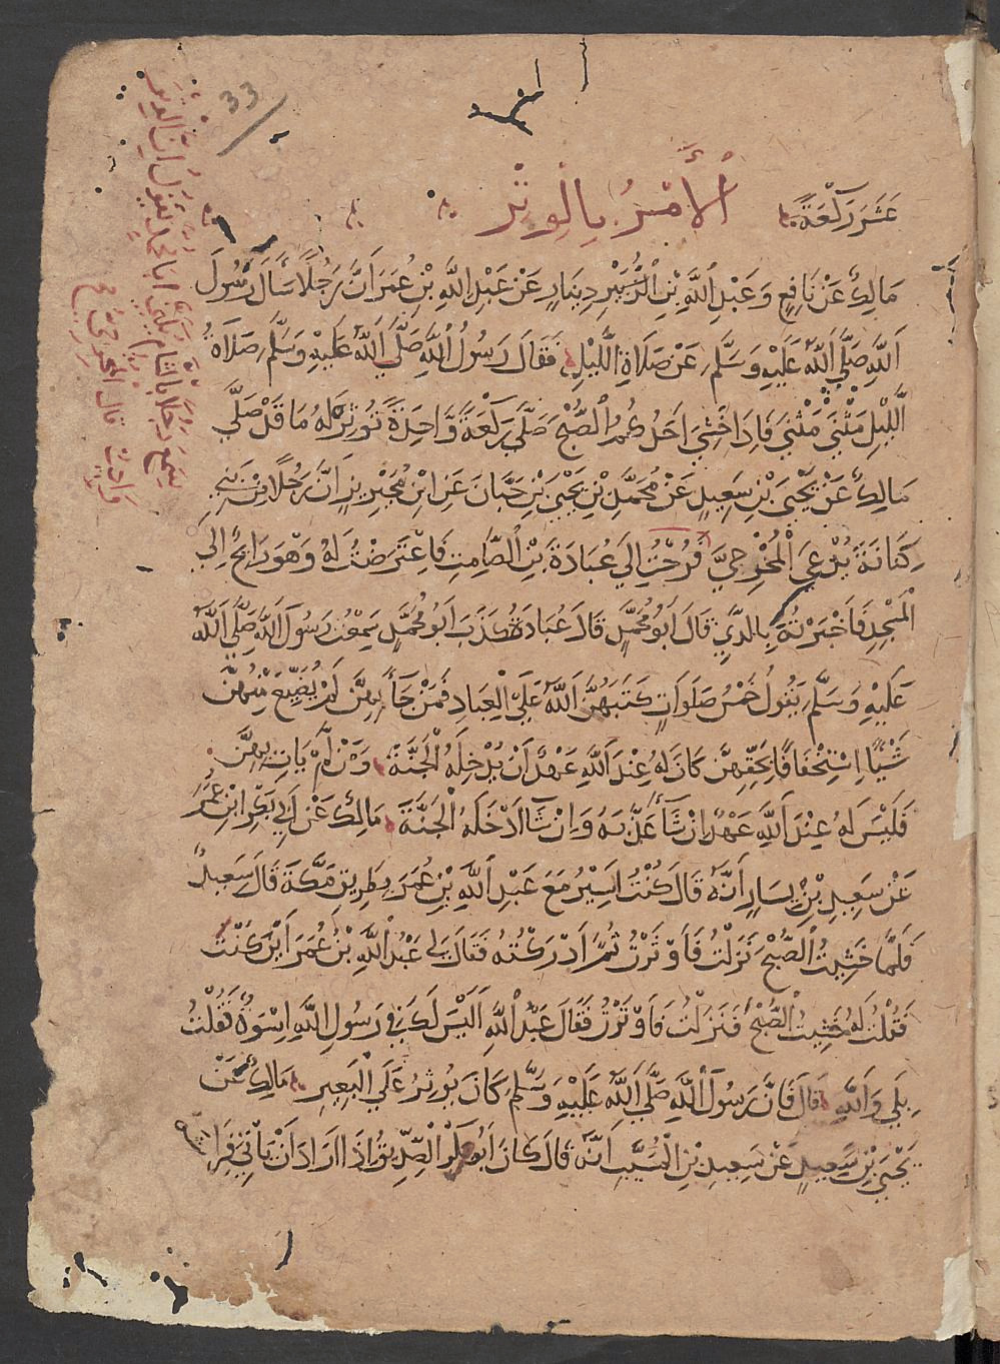 33
عَشَرَ رَكْعَةً الْأَمْرُ بِالْوِتْرِ
مَالِكٌ عَنْ نَافِعٍ وَعَبْدِ اللَّهِ بْنِ الزُّبَيْرِ دِينَارٍ عَنْ عَبْدِ اللَّهِ بْنِ عُمَرَ أَنَّ رَجُلًا سَأَلَ رَسُولَ
اللَّهِ صَلَّى اللَّهُ عَلَيْهِ وَسَلَّمَ عَنْ صَلَاةِ اللَّيْلِ فَقَالَ رَسُولُ اللَّهِ صَلَّى اللَّهُ عَلَيْهِ وَسَلَّمَ صَلَاةُ
اللَّيْلِ مَثْنَى مَثْنَى فَإِذَا خَشِيَ أَحَدُكُمُ الصُّبْحَ صَلَّى رَكْعَةً وَاحِدَةً تُوتِرُ لَهُ مَا قَدْ صَلَّى
مَالِكٌ عَنْ يَحْيَى بْنِ سَعِيدٍ عَنْ مُحَمَّدِ بْنِ يَحْيَى بْنِ حَبَّانَ عَنِ ابْنِ مُحَيْرِيزٍ أَنَّ رَجُلًا مِنْ بَنِي
كِنَانَةَ يُدْعَى الْمُخْدِجِيَّ فَرُحْتُ إِلَى عُبَادَةَ بْنِ الصَّامِتِ فَاعْتَرَضْتُ لَهُ وَهُوَ رَائِحٌ إِلَى
الْمَسْجِدِ فَأَخْبَرْتُهُ بِالَّذِي قَالَ أَبُو مُحَمَّدٍ قَالَ عُبَادَةُ كَذَبَ أَبُو مُحَمَّدٍ سَمِعْتُ رَسُولَ اللَّهِ صَلَّى اللَّهُ
عَلَيْهِ وَسَلَّمَ يَقُولُ خَمْسُ صَلَوَاتٍ كَتَبَهُنَّ اللَّهُ عَلَى الْعِبَادِ فَمَنْ جَاءَ بِهِنَّ لَمْ يُضَيِّعْ مِنْهُنَّ
شَيْئًا اِسْتِخْفَافًا بِحَقِّهِنَّ كَانَ لَهُ عِنْدَ اللَّهِ عَهْدٌ أَنْ يُدْخِلَهُ الْجَنَّةَ وَمَنْ لَمْ يَاتِ بِهِنَّ
فَلَيْسَ لَهُ عِنْدَ اللَّهِ عَهْدٌ إِنْ شَاءَ عَذَّبَهُ وَإِنْ شَا أَدْخَلَهُ الْجَنَّةَ مَالِكٌ عَنْ أَبِي بَكْرِ ابْنِ عُمَرَ
عَنْ سَعِيدِ بْنِ يَسَارٍ أَنَّهُ قَالَ كُنْتُ أَسِيرُ مَعَ عَبْدِ اللَّهِ بْنِ عُمَرَ بِطَرِيقِ مَكَّةَ قَالَ سَعِيدٌ
فَلَمَّا خَشِيتُ الصُّبْحَ نَزَلْتُ فَأَوْتَرْتُ ثُمَّ أَدْرَكْتُهُ فَقَالَ لِي عَبْدُ اللَّهِ بْنُ عُمَرَ أَيْنَ كُنْتَ
فَقُلْتُ لَهُ خَشِيتُ الصُّبْحَ فَنَزَلْتُ فَأَوْتَرْتُ فَقَالَ عَبْدُ اللَّهِ أَلَيْسَ لَكَ فِي رَسُولِ اللَّهِ إِسْوَةٌ فَقُلْتُ
بَلَى وَاللَّهِ قَالَ فَإِنَّ رَسُولَ اللَّهِ صَلَّى اللَّهُ عَلَيْهِ وَسَلَّمَ كَانَ يُوتِرُ عَلَى الْبَعِيرِ مَالِكٌ عَنْ
يَحْيَى بْنِ سَعِيدٍ عَنْ سَعِيدِ بْنِ الْمُسَيَّبِ أَنَّهُ قَالَ كَانَ أَبُو بَكْرٍ الصِّدِّيقُ إِذَا أَرَادَ أَنْ يَأْتِيَ فِرَاشَهُ
سَمِعَ رَجُلًا بِالشَّامِ يُكْنَى أَبَا مُحَمَّدٍ يَقُولُ إِنَّ الْوِتْرَ
وَاجِبٌ قَالَ الْمُخْدِجِيُّ